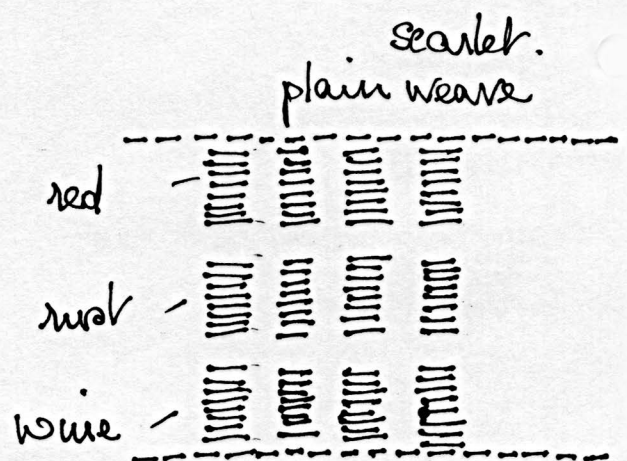 scarlet.
plain weave
red
rust
wine